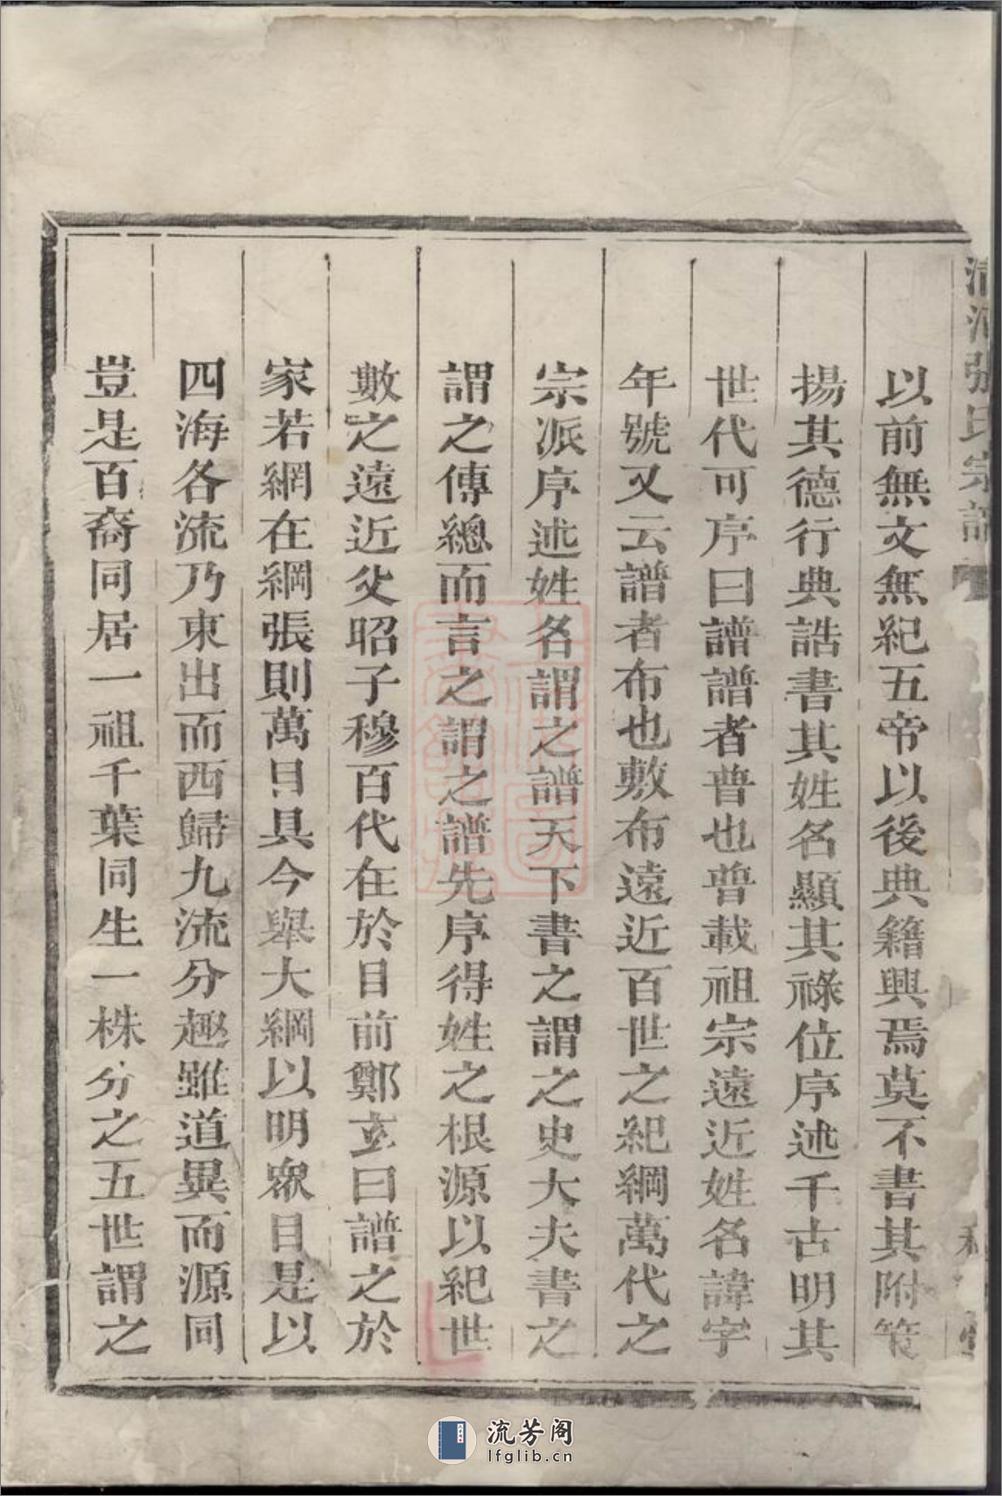 清河張氏宗譜
以前無文無紀五帝以後典籍興焉莫不書其附策
揚其德行典誥書其姓名顯其祿位序述千古明其
世代可序曰譜譜者普也普載祖宗遠近姓名諱字
年號又云譜者布也敷布遠近百世之紀綱萬代之
宗派序述姓名謂之譜天下書之謂之史大夫書之
謂之傳總而言之謂之譜先序得姓之根源以紀世
數之遠近父昭子穆百代在於目前鄭玄曰譜之於
家若網在綱張則萬目具今舉大綱以明眾目是以
四海各流乃東出而西歸九流分趣雖道異而源同
豈是百裔同居一祖千葉同生一株分之五世謂之
流芳阁
lfglib.cn